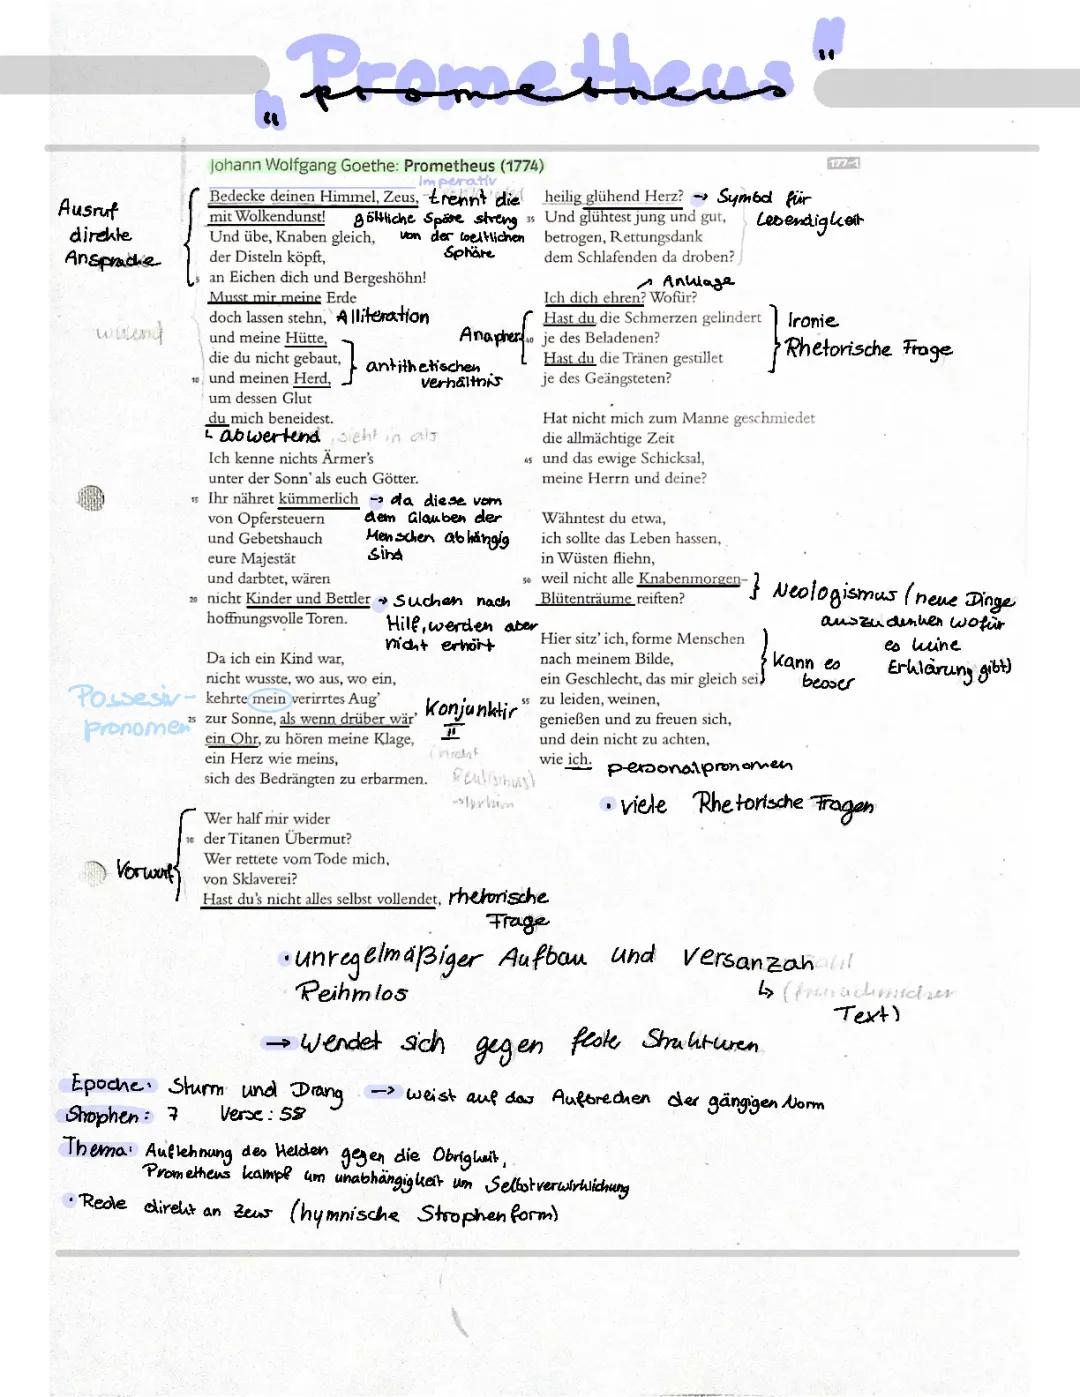 "Prometheus"
Johann Wolfgang Goethe: Prometheus (1774)
177-1
Imperativ
Bedecke deinen Himmel, Zeus, trennt die
mit Wolkendunst! göttliche Späre streng
Und übe, Knaben gleich, von der weltlichen
der Disteln köpft, Sphäre
5 an Eichen dich und Bergeshöhn!
Ausruf
direkte
Ansprache
Musst mir meine Erde
doch lassen stehn, Alliteration
und meine Hütte,
die du nicht gebaut, antithetischen
10 und meinen Herd, verhältnis
um dessen Glut
du mich beneidest.
↳ abwertend, sieht in als
Ich kenne nichts Ärmer's
unter der Sonn' als euch Götter.
15 Ihr nähret kümmerlich → da diese vom
von Opfersteuern dem Glauben der
und Gebetshauch Menschen abhängig
eure Majestät sind
und darbtet, wären
20 nicht Kinder und Bettler → Suchen nach
hoffnungsvolle Toren. Hilf, werden aber
nicht erhört
Da ich ein Kind war,
nicht wusste, wo aus, wo ein,
kehrte mein verirrtes Aug'
25 zur Sonne, als wenn drüber wär' Konjunktiv
ein Ohr, zu hören meine Klage, II
ein Herz wie meins,
sich des Bedrängten zu erbarmen.
Possesiv-
pronomen
Wer half mir wider
30 der Titanen Übermut?
Wer rettete vom Tode mich,
von Sklaverei?
Hast du's nicht alles selbst vollendet, rhetorische
Frage
Vorwurf
heilig glühend Herz? → Symbol für
35 Und glühtest jung und gut, Lebendigkeit
betrogen, Rettungsdank
dem Schlafenden da droben?
Anklage
Ich dich ehren? Wofür?
Hast du die Schmerzen gelindert
40 je des Beladenen?
Hast du die Tränen gestillet
je des Geängsteten?
Anapher
Ironie
Rhetorische Frage
Hat nicht mich zum Manne geschmiedet
die allmächtige Zeit
45 und das ewige Schicksal,
meine Herrn und deine?
Wähntest du etwa,
ich sollte das Leben hassen,
in Wüsten fliehn,
50 weil nicht alle Knabenmorgen-
Blütenträume reiften?
Neologismus (neue Dinge
auszudenken wofür
es keine
Erklärung gibt)
Hier sitz' ich, forme Menschen
nach meinem Bilde,
ein Geschlecht, das mir gleich sei,
Kann es
besser
55 zu leiden, weinen,
genießen und zu freuen sich,
und dein nicht zu achten,
wie ich. personalpronomen
• viele Rhetorische Fragen
• unregelmäßiger Aufbau und Versanzahl
Reihmlos
Text)
→ Wendet sich gegen feste Strukturen
Epoche: Sturm und Drang → weist auf das Aufbrechen der gängigen Norm
Strophen: 7 Verse: 58
Thema: Auflehnung des Helden gegen die Obrigkeit,
Prometheus kampf um unabhängigkeit um Selbstverwirklichung
• Rede direkt an Zeus (hymnische Strophenform)